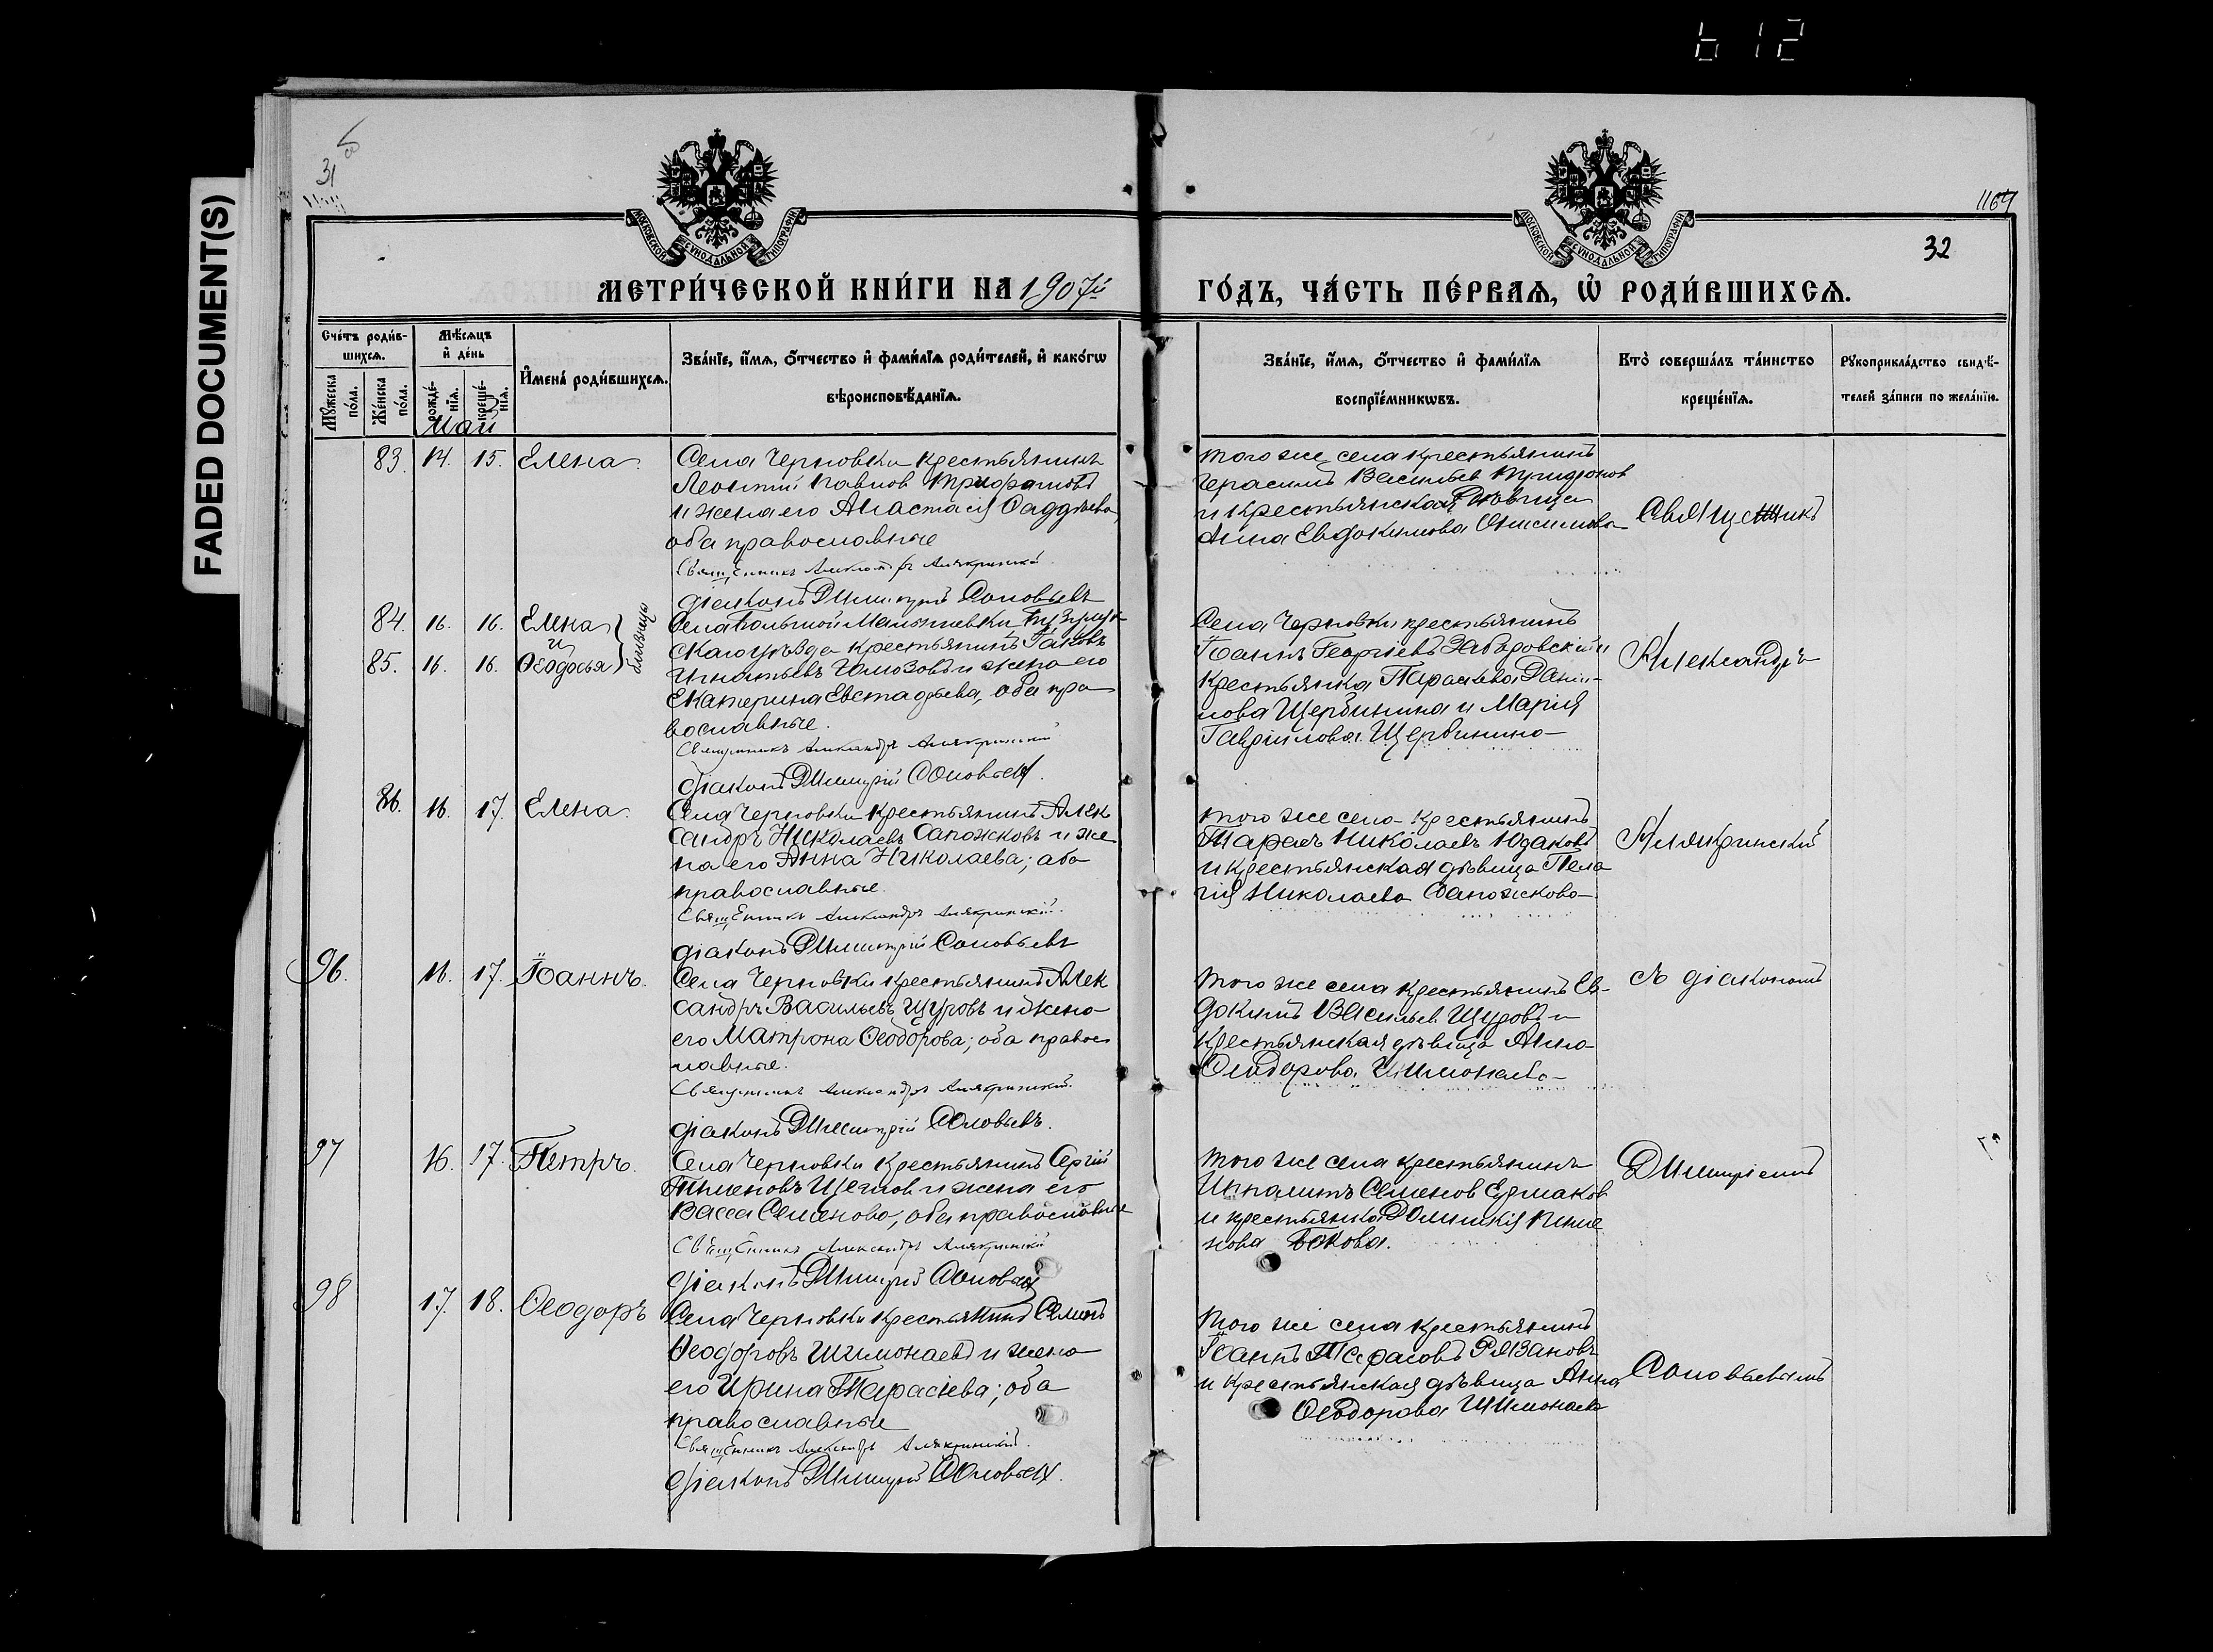 612
FADED DOCUMENT(S)
31
1164
32
МОСКОВСКОЙ СѴНОДАЛЬНОЙ ТИПОГРАФІИ
МОСКОВСКОЙ СѴНОДАЛЬНОЙ ТИПОГРАФІИ
МЕТРИ́ЧЕСКОЙ КНИ́ГИ НА 1907й
ГО́ДЪ, ЧА́СТЬ ПЕ́РВАѦ, Ѡ҆ РОДИ́ВШИХСѦ.
Сче́тъ роди́в-
шихсѧ.
Мѣ́сѧцъ
и҆ де́нь
Мꙋ́жеска по́ла.
Же́нска по́ла.
рожде́-
нїѧ.
креще́-
нїѧ.
И҆мена̀ роди́вшихсѧ.
Зва́нїе, и҆́мѧ, ѻ҆́тчество и҆ фами́лїѧ роди́телей, и҆ како́гѡ
вѣроисповѣ́данїѧ.
Зва́нїе, и҆́мѧ, ѻ҆́тчество и҆ фами́лїѧ
воспрїе́мникѡвъ.
Кто̀ соверша́лъ та́инство
креще́нїѧ.
Рꙋкоприкла́дство свидѣ́-
телей за́писи по жела́нїю.
Май
83. 14. 15. Елена.
Села Черновки крестьянинъ
Леонтій Павлов Трифоновъ
и жена его Анастасія Фаддѣева,
оба православные
Священникъ Александръ Алякринскій
діаконъ Димитрій Соловьевъ
того же села крестьянинъ
Герасимъ Васильев Трифонов
и крестьянская дѣвица
Анна Евдокимова Онисимова
Священникъ
84. 16. 16. Елена
и
85. 16. 16. Ѳеодосья
близнецы
Села Большой Малышевки Бузулук-
скаго уѣзда крестьянинъ Іаковъ
Игнатьевъ и жена его
Екатерина Евстафьева, оба пра
вославные.
Священникъ Александръ Алякринскій
діаконъ Димитрій Соловьевъ.
Села Черновки крестьянинъ
Іоаннъ Георгіевъ Забаровскій и
крестьянка Параскева Дани-
лова Щербинина и Марія
Гавріилова Щербинина
Александръ
86. 16. 17. Елена.
Села Черновки крестьянинъ Алек
сандръ Николаевъ Сапожковъ и же
на его Анна Николаева; оба
православные.
Священникъ Александръ Алякринскій.
діаконъ Димитрій Соловьевъ
того же села крестьянинъ
Тарасъ Николаевъ Юдаковъ
и крестьянская дѣвица Пела
гія Николаева Сапожкова
Алякринскій
96. 16. 17. Іоаннъ.
Села Черновки крестьянинъ Алек
сандръ Васильевъ Щуровъ и жена
его Матрона Ѳеодорова; оба правос
лавные.
Священникъ Александръ Алякринскій.
діаконъ Димитрій Соловьевъ.
того же села крестьянинъ Ев-
докимъ Васильев Щуровъ и
крестьянская дѣвица Анна
Ѳеодорова Шимонаева
съ діакономъ
97 16. 17. Петръ.
Села Черновки крестьянинъ Сергій
Пименовъ Щеглов и жена его
Васса Семенова; оба православные
Священникъ Александръ Алякринскій
діаконъ Димитрій Соловьевъ
того же села крестьянинъ
Ипполитъ Семенов Ермаков
и крестьянка Домникія Пиме
нова Бокова.
Димитріемъ
98 17. 18. Ѳеодоръ
Села Черновки крестьянинъ Семенъ
Ѳеодоровъ Шимонаевъ и жена
его Ирина Тарасіева; оба
православные
Священникъ Александръ Алякринскій.
діаконъ Димитрій Соловьевъ.
того же села крестьянинъ
Іоаннъ Рязановъ
и крестьянская дѣвица Анна
Ѳеодорова Шимонаева
Соловьевымъ